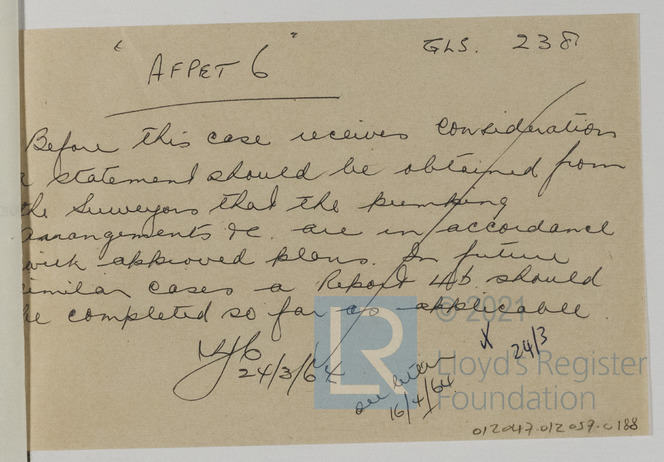 "AFPET 6"
GLS. 238
Before this case receives consideration
a statement should be obtained from
the Surveyors that the pumping
arrangements &c. are in accordance
with approved plans. In future
similar cases a Report 4b should
be completed so far as applicable.
24/3/64
X 24/3
see letter
16/4/64
LR
© 2021
Lloyd's Register
Foundation
012047.012059.0188